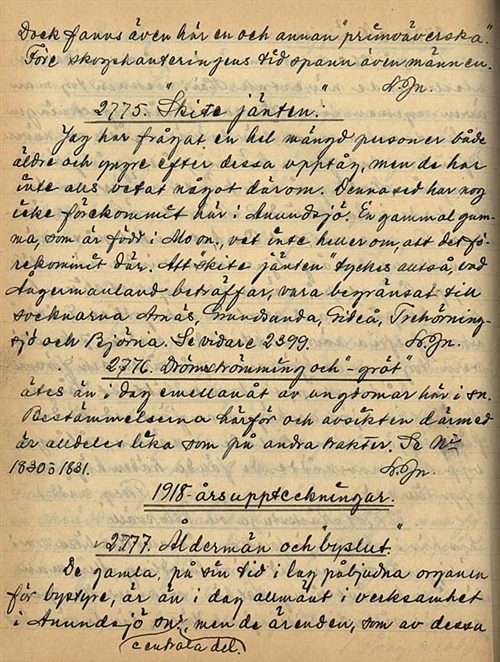 Dock fanns även här en och annan "primväverska".
Före skogshanteringens tid spann även männen.
N. Jn.
2775. "Skite jänten."
Jag har frågat en hel mängd personer både
äldre och yngre efter dessa upptåg, men de har
inte alls vetat något därom. Denna sed har nog
icke förekommit här i Anundsjö. En gammal gum-
ma, som är född i Mo sn., vet inte heller om, att det fö-
rekommit där. Att "skite jänten" tyckes alltså, vad
Ångermanland beträffar, vara begränsat till
socknarna Arnäs, Grundsunda, Gideå, Trehörning-
sjö och Björna. Se vidare 2399. N. Jn.
2776. Drömströmming och "-gröt"
ätes än i dag emellanåt av ungdomar här i sn.
Bestämmelserna härför och avsikten därmed
är alldeles lika som på andra trakter. Se No
1830 o 1831. N. Jn.
1918-årsuppteckningar.
2777. Åldermän och "byslut".
De gamla, på sin tid i lag påbjudna organen
för bystyre, är än i dag allmänt i verksamhet
i Anundsjö sns, men de ärenden, som av dessa
centrala del.